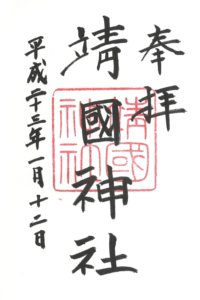 奉拝
靖國神社
靖國
神社
平成二十三年一月十二日